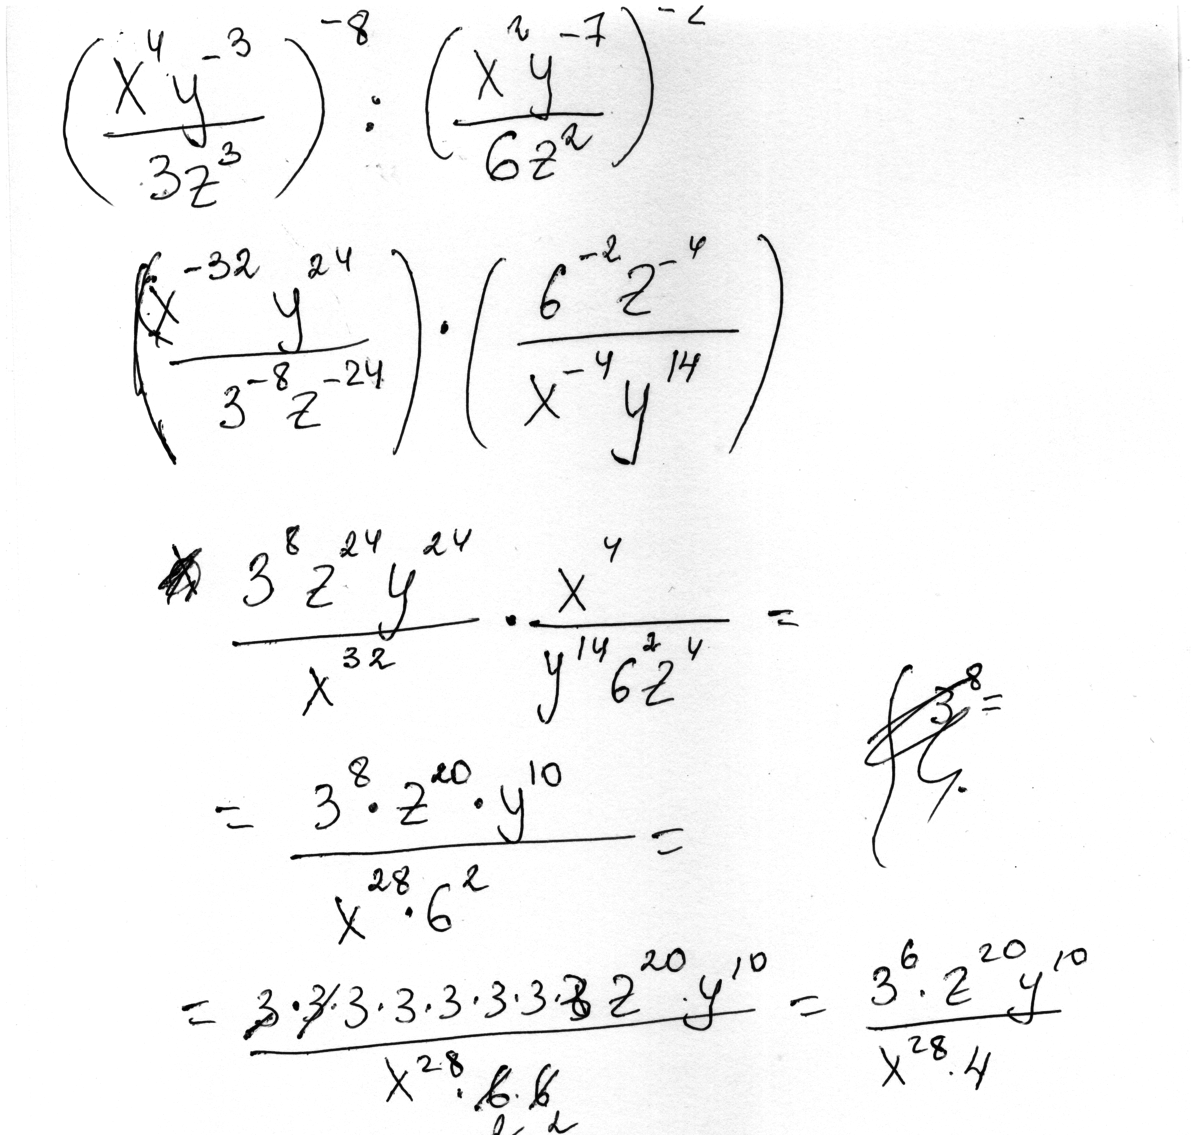 (x⁴y⁻³ / 3z³)⁻⁸ : (x²y⁻⁷ / 6z²)⁻²
(x⁻³² y²⁴ / 3⁻⁸z⁻²⁴) · (6⁻²z⁻⁴ / x⁻⁴y¹⁴)
3⁸z²⁴y²⁴ / x³² · x⁴ / y¹⁴6²z⁴ =
3⁸=
= 3⁸·z²⁰·y¹⁰ / x²⁸·6² =
= 3·3·3·3·3·3·3·3 z²⁰·y¹⁰ / x²⁸·6·6 = 3⁶·z²⁰y¹⁰ / x²⁸·4
2 2